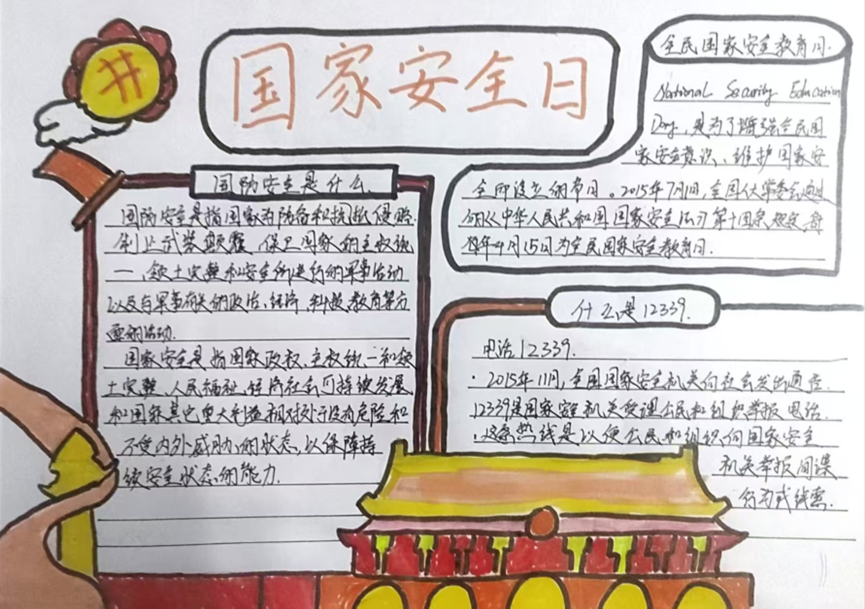 国家安全日
国防安全是什么
国防安全是指国家为防备和抵抗侵略
制止武装颠覆,保卫国家的主权统
一、领土完整和安全所进行的军事活动
以及与军事有关的政治、经济、科技、教育等方
面的活动.
国家安全是指国家政权、主权统一和领
土完整、人民福祉、经济社会可持续发展
和国家其它重大利益相对处于没有危险和
不受内外威胁的状态,以保障持
续安全状态的能力.
全民国家安全教育日.
National Security Education
Day,是为了增强全民国
家安全意识、维护国家安
全而设立的节日。2015年7月1日,全国人常委会通过
的《中华人民共和国国家安全法》第十四条规定,每
年4月15日为全民国家安全教育日.
什么是12339.
电话12339.
·2015年11月,全国国家安全机关向社会发出通告
12339是国家安全机关受理公民和组织举报电话.
·这条热线是以便公民和组织向国家安全
机关举报间谍
行为或线索.